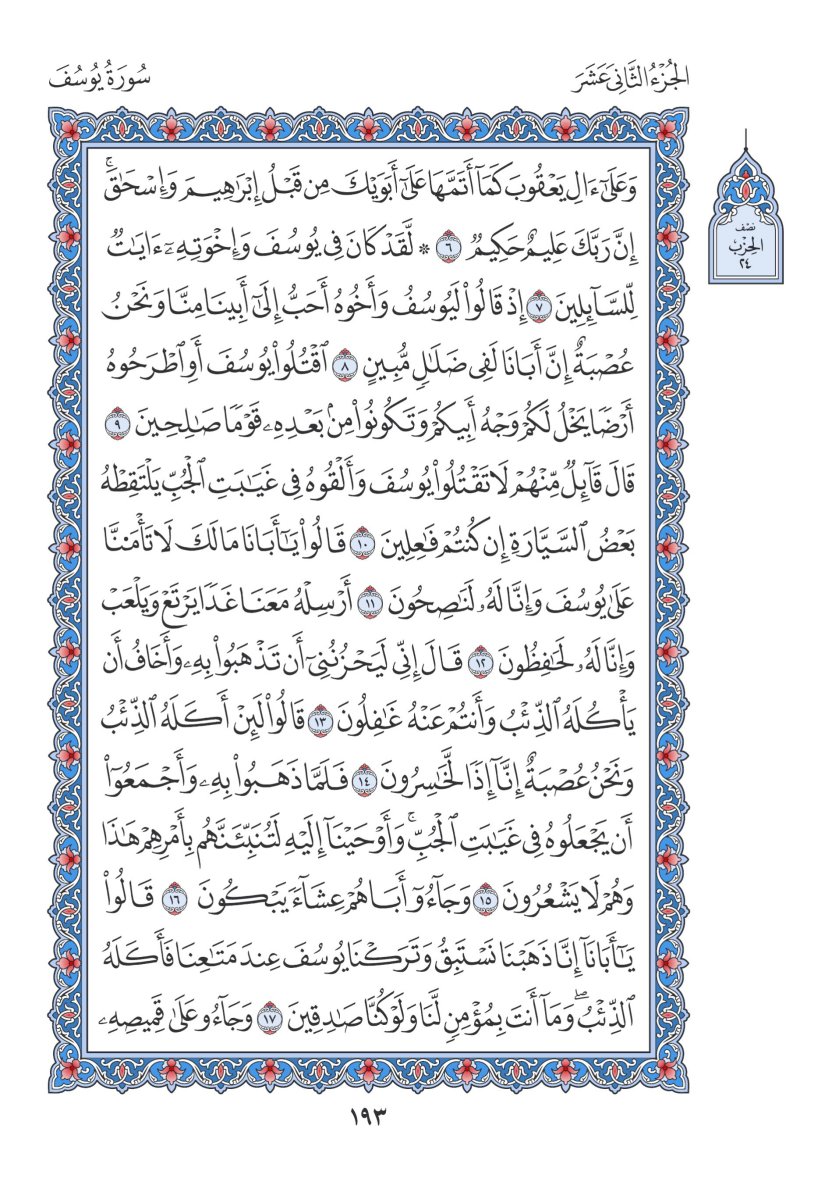 الجُزْءُ الثَّانِيَ عَشَرَ
سُورَةُ يُوسُفَ
وَعَلَىٰٓ ءَالِ يَعْقُوبَ كَمَآ أَتَمَّهَا عَلَىٰٓ أَبَوَيْكَ مِن قَبْلُ إِبْرَٰهِيمَ وَإِسْحَٰقَۚ
إِنَّ رَبَّكَ عَلِيمٌ حَكِيمٌ ٦ * لَّقَدْ كَانَ فِى يُوسُفَ وَإِخْوَتِهِۦٓ ءَايَٰتٌ
لِّلسَّآئِلِينَ ٧ إِذْ قَالُوا۟ لَيُوسُفُ وَأَخُوهُ أَحَبُّ إِلَىٰٓ أَبِينَا مِنَّا وَنَحْنُ
عُصْبَةٌ إِنَّ أَبَانَا لَفِى ضَلَٰلٍ مُّبِينٍ ٨ ٱقْتُلُوا۟ يُوسُفَ أَوِ ٱطْرَحُوهُ
أَرْضًا يَخْلُ لَكُمْ وَجْهُ أَبِيكُمْ وَتَكُونُوا۟ مِنۢ بَعْدِهِۦ قَوْمًا صَٰلِحِينَ ٩
قَالَ قَآئِلٌ مِّنْهُمْ لَا تَقْتُلُوا۟ يُوسُفَ وَأَلْقُوهُ فِى غَيَٰبَتِ ٱلْجُبِّ يَلْتَقِطْهُ
بَعْضُ ٱلسَّيَّارَةِ إِن كُنتُمْ فَٰعِلِينَ ١٠ قَالُوا۟ يَٰٓأَبَانَا مَا لَكَ لَا تَأْمَ۫نَّا
عَلَىٰ يُوسُفَ وَإِنَّا لَهُۥ لَنَٰصِحُونَ ١١ أَرْسِلْهُ مَعَنَا غَدًا يَرْتَعْ وَيَلْعَبْ
وَإِنَّا لَهُۥ لَحَٰفِظُونَ ١٢ قَالَ إِنِّى لَيَحْزُنُنِىٓ أَن تَذْهَبُوا۟ بِهِۦ وَأَخَافُ أَن
يَأْكُلَهُ ٱلذِّئْبُ وَأَنتُمْ عَنْهُ غَٰفِلُونَ ١٣ قَالُوا۟ لَئِنْ أَكَلَهُ ٱلذِّئْبُ
وَنَحْنُ عُصْبَةٌ إِنَّآ إِذًا لَّخَٰسِرُونَ ١٤ فَلَمَّا ذَهَبُوا۟ بِهِۦ وَأَجْمَعُوٓا۟
أَن يَجْعَلُوهُ فِى غَيَٰبَتِ ٱلْجُبِّۚ وَأَوْحَيْنَآ إِلَيْهِ لَتُنَبِّئَنَّهُم بِأَمْرِهِمْ هَٰذَا
وَهُمْ لَا يَشْعُرُونَ ١٥ وَجَآءُوٓ أَبَاهُمْ عِشَآءً يَبْكُونَ ١٦ قَالُوا۟
يَٰٓأَبَانَآ إِنَّا ذَهَبْنَا نَسْتَبِقُ وَتَرَكْنَا يُوسُفَ عِندَ مَتَٰعِنَا فَأَكَلَهُ
ٱلذِّئْبُۖ وَمَآ أَنتَ بِمُؤْمِنٍ لَّنَا وَلَوْ كُنَّا صَٰدِقِينَ ١٧ وَجَآءُو عَلَىٰ قَمِيصِهِۦ
نصف
الحِزْب
٢٤
١٩٣